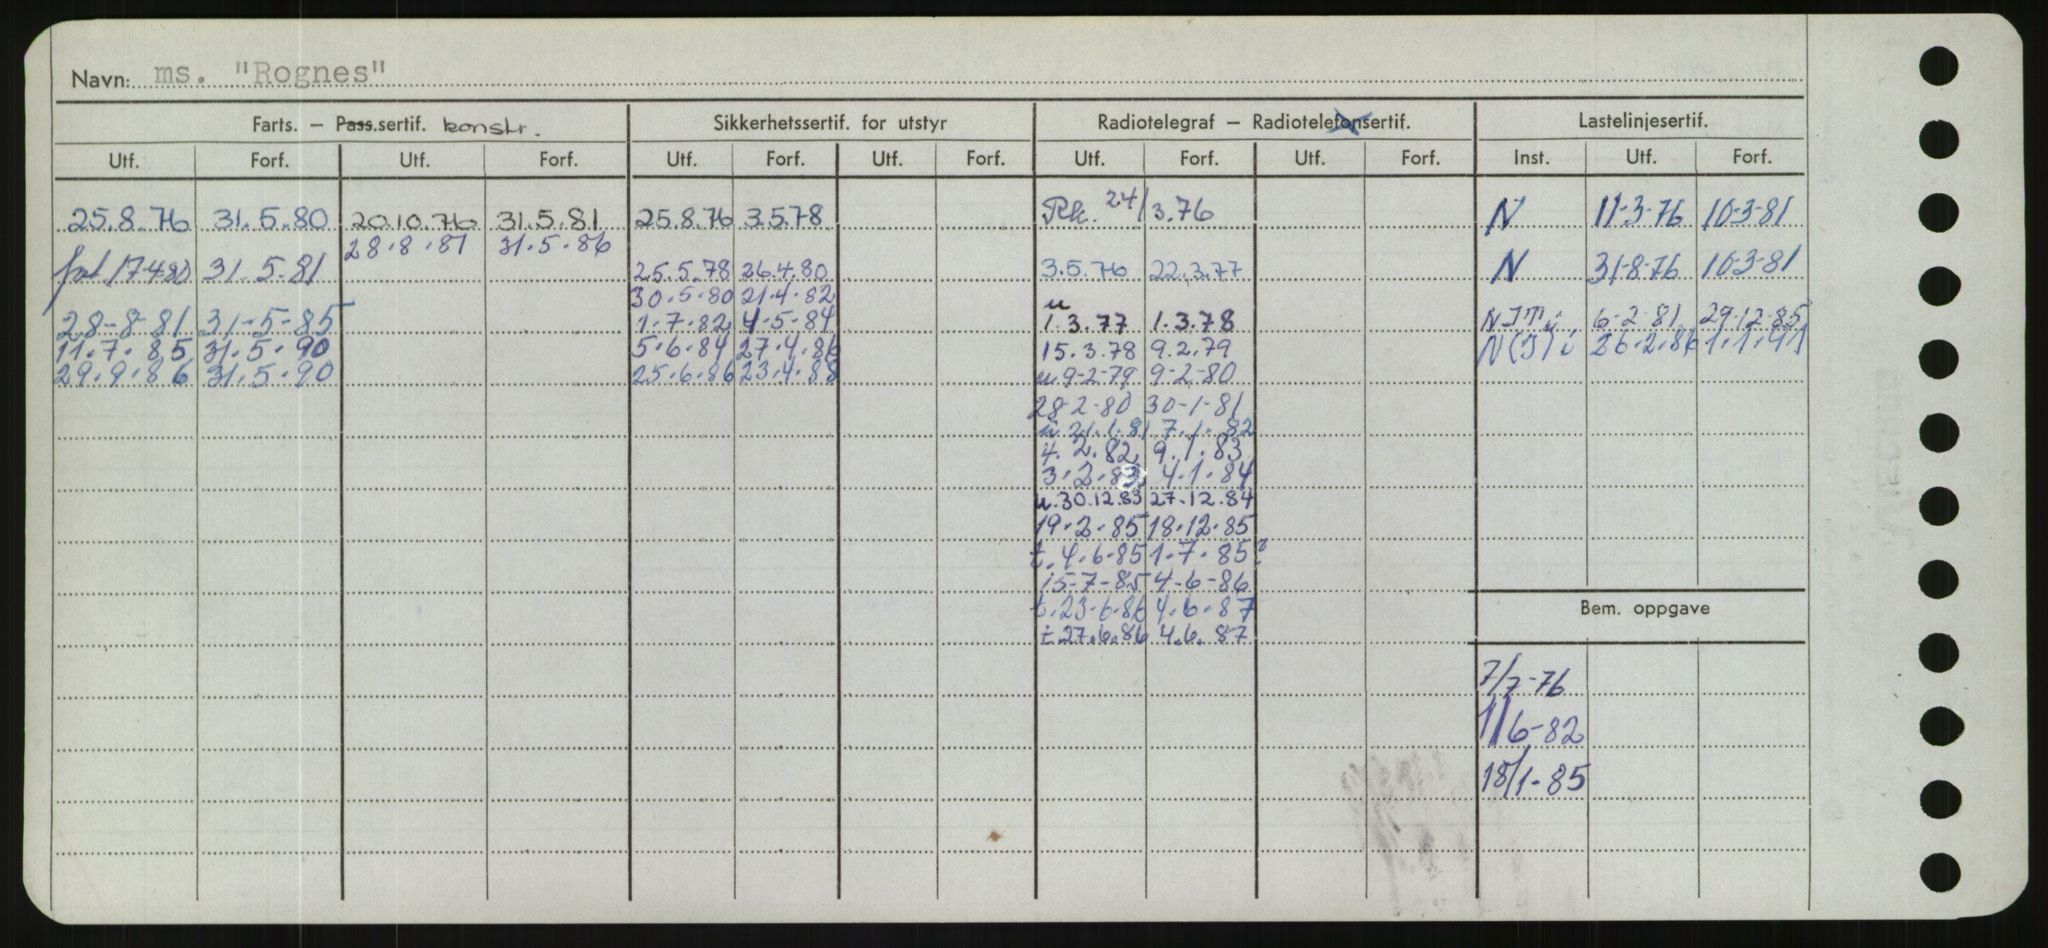 Navn: ms. "Rognes"
Farts. — Pass.sertif. konstr. Sikkerhetssertif. for utstyr Radiotelegraf — Radiotelefonsertif. Lastelinjesertif.
Utf. Forf. Utf. Forf. Utf. Forf. Utf. Forf. Utf. Forf. Utf. Forf. Inst. Utf. Forf.
25.8.76 31.5.80 20.10.76 31.5.81 25.8.76 3.5.78 Rk. 24/3.76 N 11-3-76 10-3-81
28.8.81 31.5.86
17-4-80 31.5.81 25.5.78 26.4.80 3.5.76 22.3.77 N 31-8-76 10-3-81
30.5.80 21.4.82
28-8-81 31-5-85 1.7.82 4.5.84 u 1.3.77 1.3.78 6-2-81 29-12-85
11.7.85 31.5.90 5.6.84 27.4.86 15.3.78 9.2.79 N(I)i 26.2.86 1.1.91
29.9.86 31.5.90 25.6.86 23.4.88 u 9-2-79 9-2-80
28-2-80 30-1-81
u.21.1.81 7.1.82
4.2.82 9.1.83
3.2.83 4.1.84
u.30.12.83 27.12.84
19.2.85 18.12.85
t.4.6.85 1.7.85?
15-7-85 4-6-86
t.23.6.86 4.6.87
t.27.6.86 4.6.87
Bem. oppgave
7/7-76
11/6-82
18/1-85